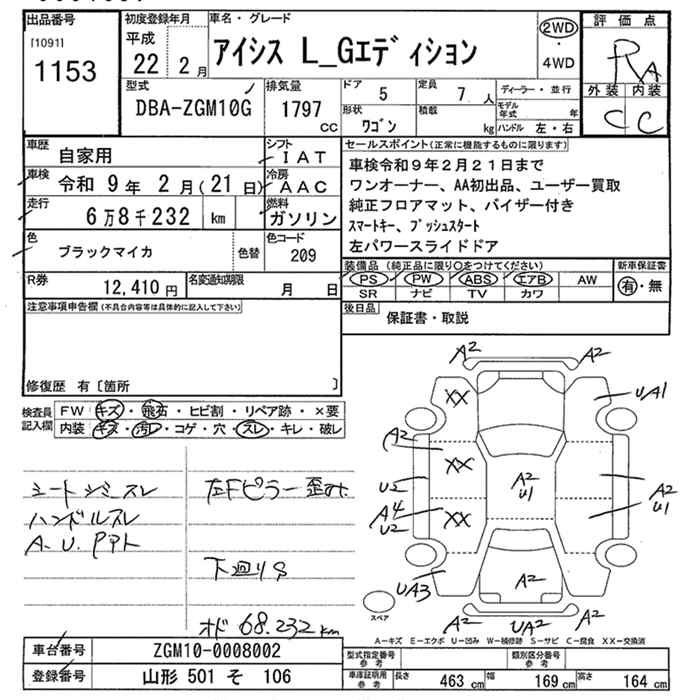 出品番号
[1091]
1153
初度登録年月
平成
22 2月
車名・グレード
アイシス L_Gエディション
2WD
・
4WD
評価点
RA
外装 内装
C C
型式
DBA-ZGM10G
排気量
1797
cc
ドア 5
定員 7 人
形状
ワゴン
積載
kg
ディーラー・並行
モデル年式 年
ハンドル 左・右
車歴
自家用
シフト
IAT
車検 令和 9年 2月(21日)
冷房
AAC
走行
6万8千232 km
燃料
ガソリン
色
ブラックマイカ
色替
色コード
209
R券
12,410 円
名変通知期限
月 日
セールスポイント(正常に機能するものに限ります)
車検令和9年2月21日まで
ワンオーナー、AA初出品、ユーザー買取
純正フロアマット、バイザー付き
スマートキー、プッシュスタート
左パワースライドドア
装備品 (純正品に限り○をつけてください)
PS・PW・ABS・エアB AW
SR ナビ TV カワ
新車保証書
有・無
後日品
保証書・取説
注意事項申告欄(不具合内容等は具体的に記入して下さい)
修復歴 有〔箇所 〕
検査員記入欄
FW キズ・飛石・ヒビ割・リペア跡・×要
内装 キズ・汚レ・コゲ・穴・スレ・キレ・破レ
シートシミスレ
ハンドルスレ
A.U.
左Fピラー歪み
下廻りS
オド 68.232km
A2 A2
XX
UA1
A2
XX
U2
A2
U1
A2
U1
A4
U2
XX
UA3
A2
A2 UA2 A2
スペア
A-キズ E-エクボ U-凹み W-補修跡 S-サビ C-腐食 XX-交換済
車台番号
ZGM10-0008002
登録番号
山形 501 そ 106
型式指定番号
参考
類別区分番号
参考
車庫証明用
参考
長さ 463 cm
幅 169 cm
高さ 164 cm